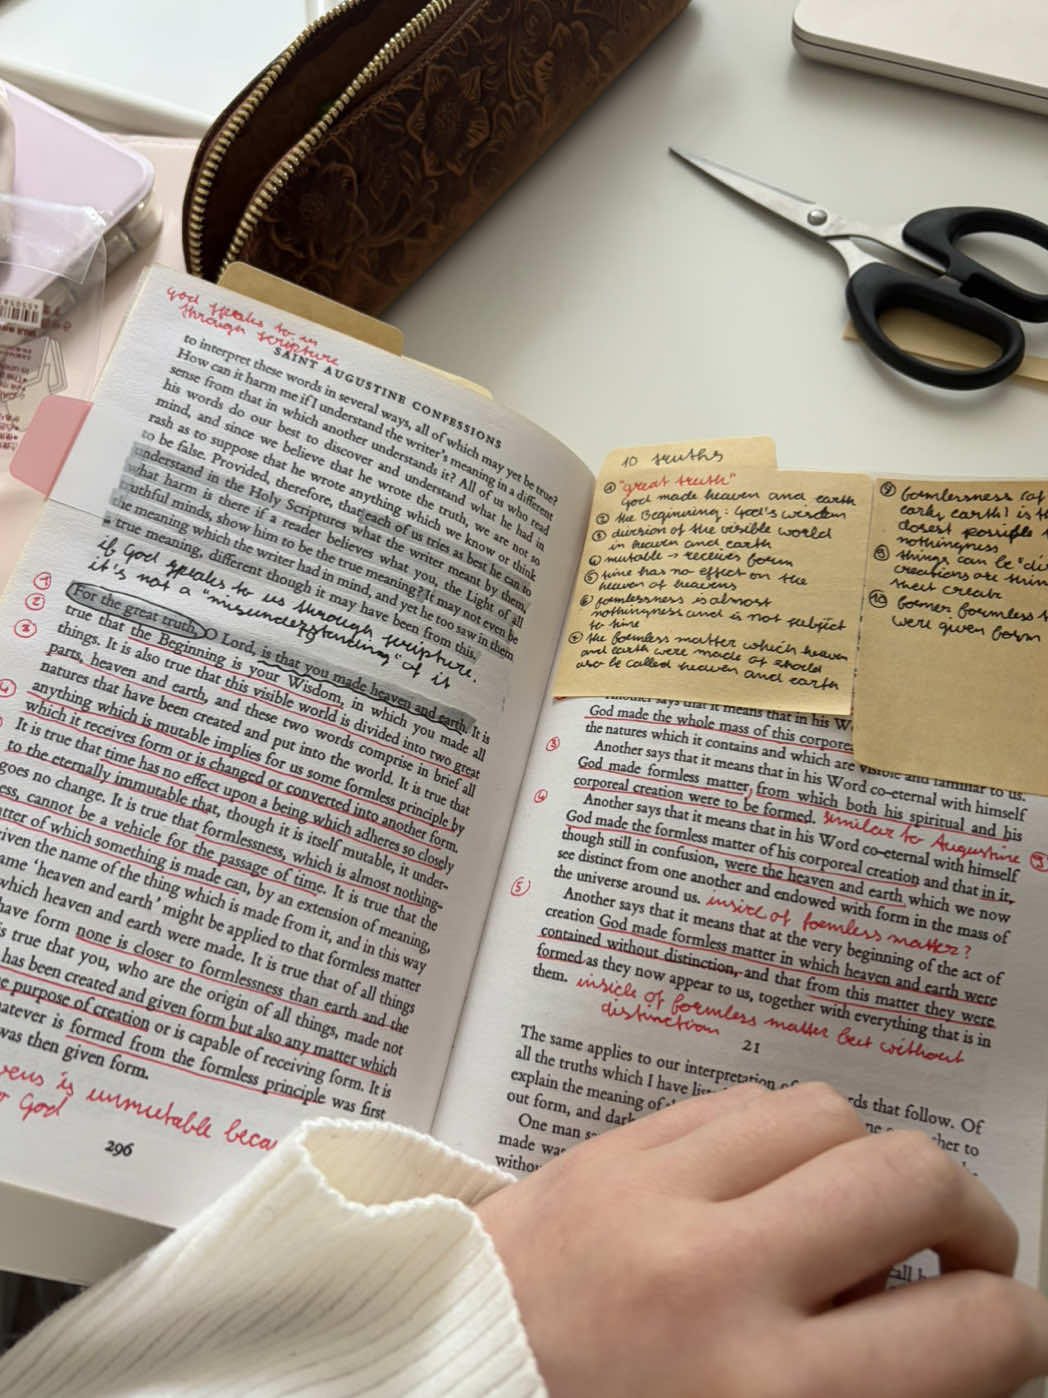 god speaks to us
through scripture
SAINT AUGUSTINE CONFESSIONS
to interpret these words in several ways, all of which may yet be true?
How can it harm me if I understand the writer's meaning in a different
sense from that in which another understands it? All of us who read
his words do our best to discover and understand what he had in
mind, and since we believe that he wrote the truth, we are not so
rash as to suppose that he wrote anything which we know or think
to be false. Provided, therefore, that each of us tries as best he can to
understand in the Holy Scriptures what the writer meant by them,
what harm is there if a reader believes what you, the Light of all
truthful minds, show him to be the true meaning? It may not even be
the meaning which the writer had in mind, and yet he too saw in them
a true meaning, different though it may have been from this.
if God speaks to us through scripture.
it's not a "misunderstanding" of it
① For the great truth, O Lord, is that you made heaven and earth. It is
② true that the Beginning is your Wisdom, in which you made all
③ things. It is also true that this visible world is divided into two great
parts, heaven and earth, and these two words comprise in brief all
natures that have been created and put into the world. It is true that
4 anything which is mutable implies for us some formless principle by
which it receives form or is changed or converted into another form.
It is true that time has no effect upon a being which adheres so closely
to the eternally immutable that, though it is itself mutable, it under-
goes no change. It is true that formlessness, which is almost nothing-
ess, cannot be a vehicle for the passage of time. It is true that the
tter of which something is made can, by an extension of meaning,
iven the name of the thing which is made from it, and in this way
ame 'heaven and earth' might be applied to that formless matter
which heaven and earth were made. It is true that of all things
have form none is closer to formlessness than earth and the
is true that you, who are the origin of all things, made not
has been created and given form but also any matter which
e purpose of creation or is capable of receiving form. It is
atever is formed from the formless principle was first
was then given form.
vens is unmutable beca
God
296
10 truths
① "great truth"
God made heaven and earth
② the Beginning: God's wisdom
③ division of the visible world
in heaven and earth
④ mutable → receives form
⑤ time has no effect on the
heaven of heavens
⑥ formlessness is almost
nothingness and is not subject
to time
⑦ the formless matter which heaven
and earth were made of should
also be called heaven and earth
formlessness (of
early earth) is th
closest possible
nothingness
⑨ things can be "di
creations are thin
that create
⑩ former formless
were given form
Another says that it means that in his W
God made the whole mass of this corpore
the natures which it contains and which are visible and familiar to us.
③ Another says that it means that in his Word co-eternal with himself
God made formless matter, from which both his spiritual and his
corporeal creation were to be formed. similar to Augustine
④ Another says that it means that in his Word co-eternal with himself
God made the formless matter of his corporeal creation and that in it,
though still in confusion, were the heaven and earth which we now
see distinct from one another and endowed with form in the mass of
the universe around us. inside of formless matter?
⑤ Another says that it means that at the very beginning of the act of
creation God made formless matter in which heaven and earth were
contained without distinction, and that from this matter they were
formed as they now appear to us, together with everything that is in
them. inside of formless matter but without
distinction
21
The same applies to our interpretation of rds that follow. Of
all the truths which I have lis
explain the meaning of her to
out form, and dark
One man s
made was
withou